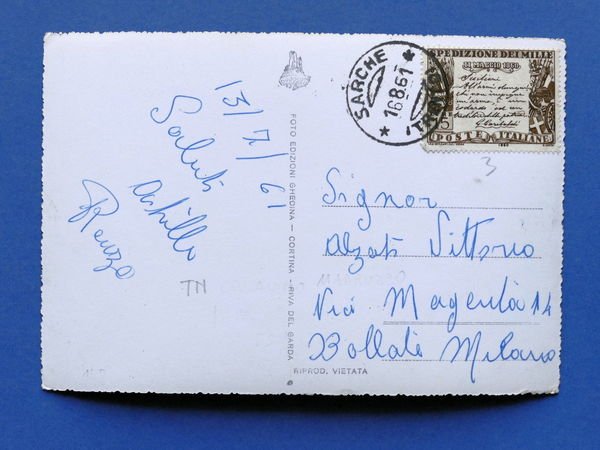 13/7/61
Saluti
Achille
Renzo
FOTO EDIZIONI GHEDINA - CORTINA - RIVA DEL GARDA
RIPROD. VIETATA
SARCHE
16.8.61
SPEDIZIONE DEI MILLE
11 MAGGIO 1860
POSTE ITALIANE
3
Signor
Alzati Vittorio
Via Magenta 14
Bollate Milano
TN